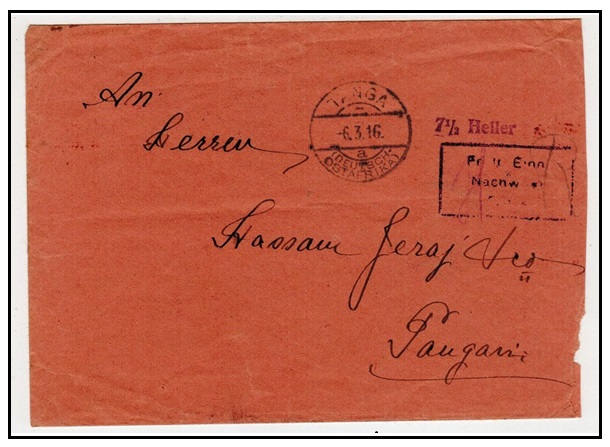 An
Herren
TANGA
-6.3.16.
a
(DEUTSCH-
OSTAFRIKA)
7½ Heller
Nachw
Hassam Jeraj & co
Pangani